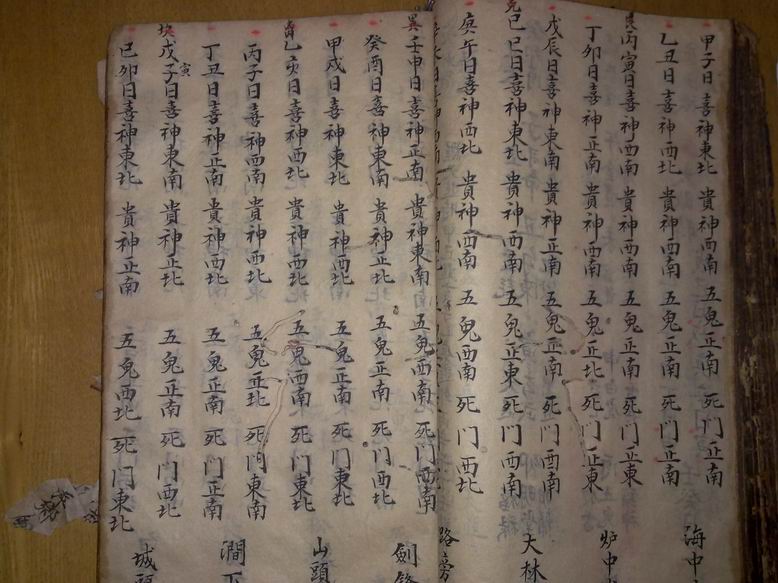 甲子日喜神東北 貴神西南 五鬼正南 死门正南
海中
乙丑日喜神西北 貴神西南 五鬼正南 死门正南
丙寅日喜神西南 貴神西南 五鬼正南 死门正東
炉中
丁卯日喜神正南 貴神西南 五鬼正北 死门正東
戊辰日喜神東南 貴神正南 五鬼正南 死门西南
大林
己巳日喜神東北 貴神西南 五鬼正東 死门西南
庚午日喜神西北 貴神西南 五鬼西南 死门西北
路旁
壬申日喜神正南 貴神東南 五鬼西南 死门西南
劍鋒
癸酉日喜神東南 貴神正北 五鬼正南 死门西北
甲戌日喜神東北 貴神西北 五鬼正南 死门東北
山頭
乙亥日喜神西北 貴神西北 五鬼西南 死门東北
丙子日喜神西南 貴神西北 五鬼正北 死门東南
澗下
丁丑日喜神正南 貴神西北 五鬼正南 死门正南
戊子寅日喜神東南 貴神正北 五鬼正南 死门西北
城頭
己卯日喜神東北 貴神正南 五鬼西北 死门東北